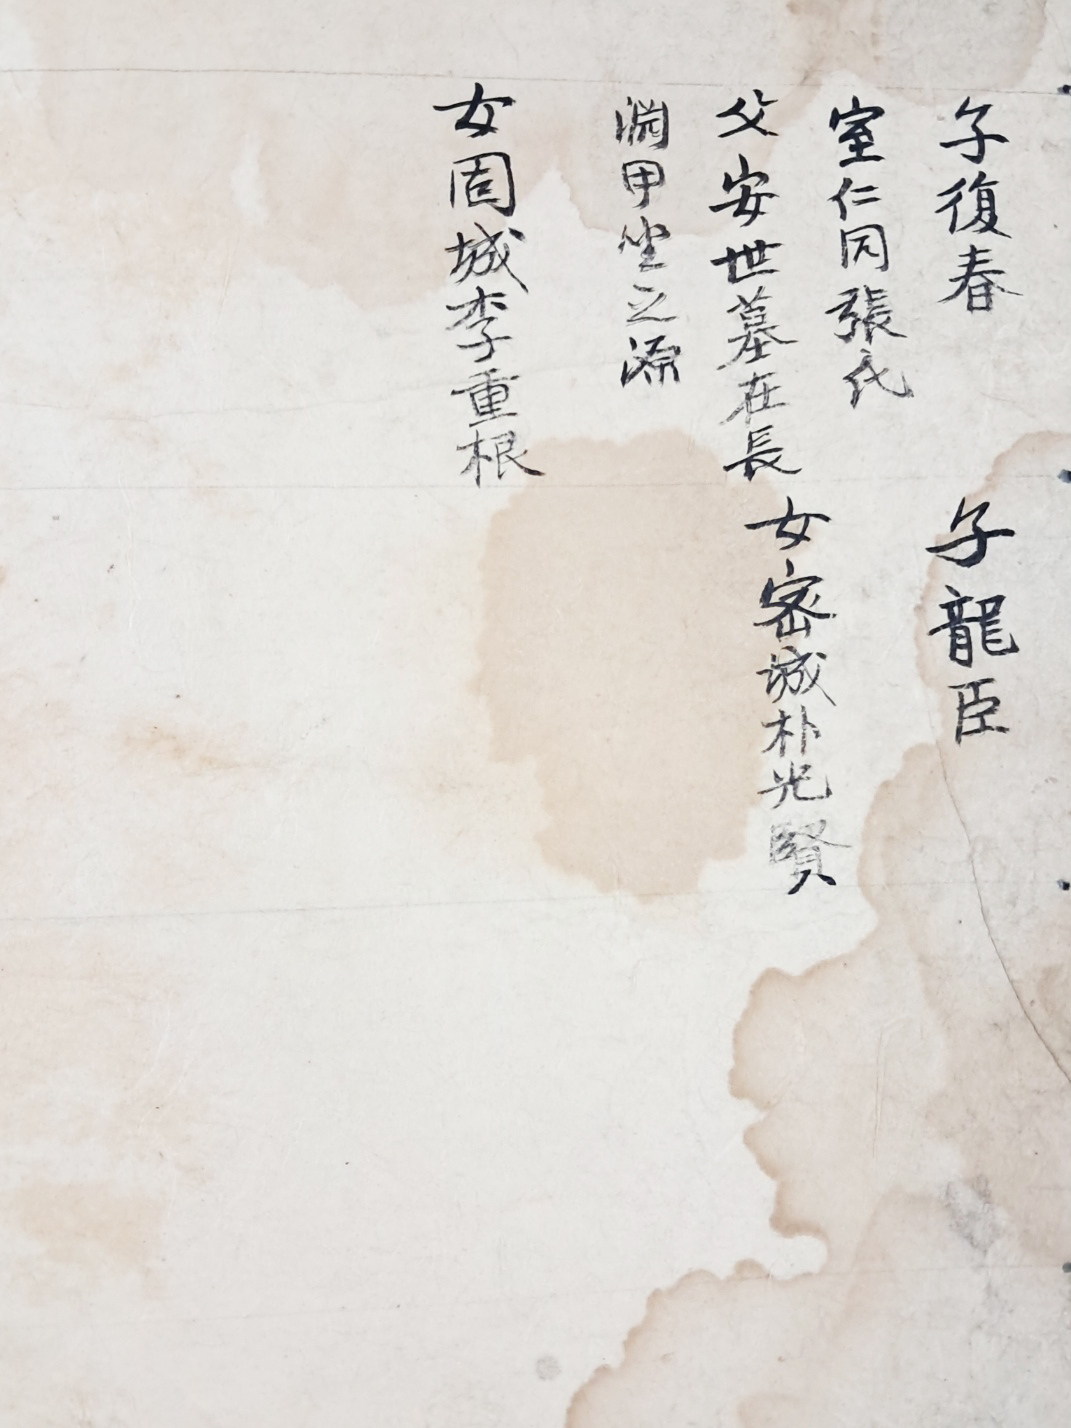 子復春
室仁同張氏
父安世墓在長
淵甲坐之源
女固城李重根
子龍臣
女密城朴光賢